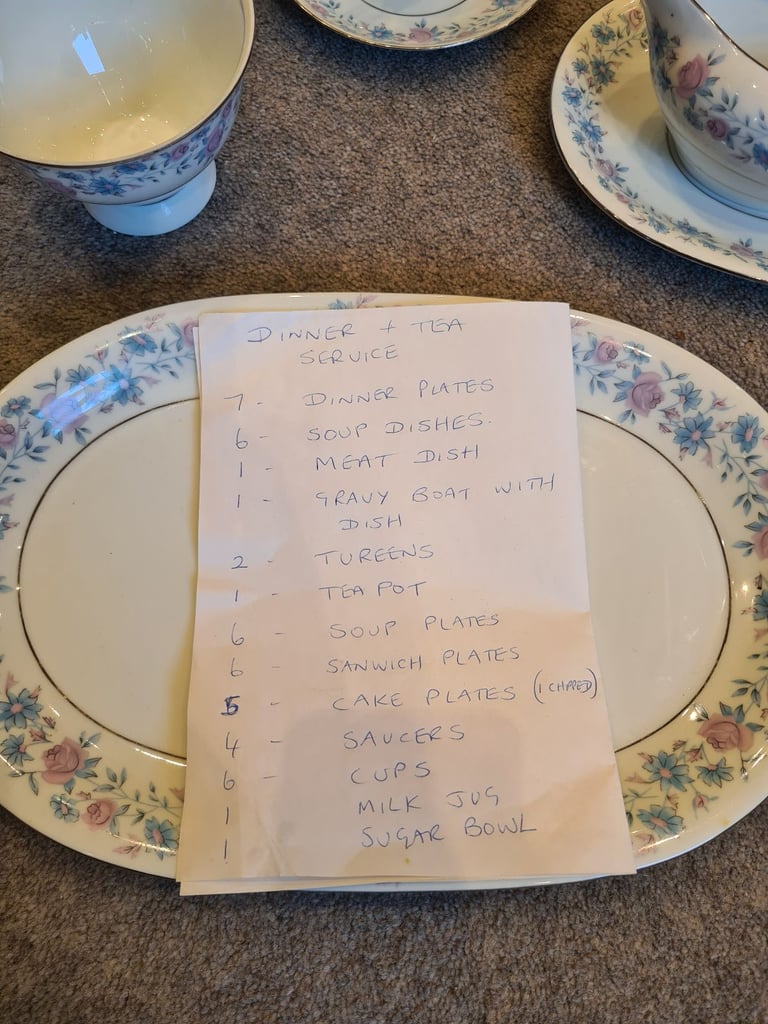 DINNER + TEA
SERVICE
7 - DINNER PLATES
6 - SOUP DISHES.
1 - MEAT DISH
1 - GRAVY BOAT WITH
DISH
2 - TUREENS
1 - TEA POT
6 - SOUP PLATES
6 - SANWICH PLATES
5 - CAKE PLATES (1 CHIPPED)
4 - SAUCERS
6 - CUPS
1 MILK JUG
1 SUGAR BOWL